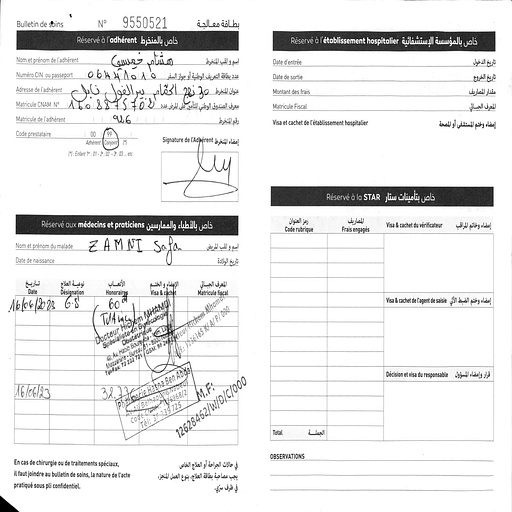 Bulletin de soins N° 9550521 بطاقة معالجة
Réservé à l'adhérent خاص بالمنخرط
Nom et prénom de l'adhérent هشام خميسي اسم و لقب المنخرط
Numéro CIN ou passeport 06441010 عدد بطاقة التعريف الوطنية أو جواز السفر
Adresse de l'adhérent نهج الحمام بئر الفول نابل عنوان المنخرط
Matricule CNAM N°
Matricule de l'adhérent 926 رقم المنخرط
Code prestataire 00 99
Adhérent Conjoint (*)
(*) Enfant 1er : 01 - 2 : 02 - 3 : 03 ... etc
Signature de l'Adhérent إمضاء المنخرط
Réservé aux médecins et praticiens خاص بالأطباء والممارسين
Nom et prénom du malade ZAMNI Safa اسم و لقب المريض
Date de naissance تاريخ الولادة
تاريخ نوعية العلاج الأتعاب الإمضاء و الختم المعرف الجبائي
Date Désignation Honoraires Visa & cachet Matricule fiscal
16/06/2023 G.S 60
Docteur
16/06/23 32,7
Pharmacie Ben
M.F:
12628462/W/D/C/000
En cas de chirurgie ou de traitements spéciaux,
il faut joindre au bulletin de soins, la nature de l'acte
pratiqué sous pli confidentiel.
في حالات الجراحة أو العلاج الخاص
يجب مصاحبة بطاقة العلاج، بنوع العمل المنجز،
في ظرف سري.
Réservé à l'établissement hospitalier خاص بالمؤسسة الإستشفائية
Date d'entrée تاريخ الدخول
Date de sortie تاريخ الخروج
Montant des frais مقدار المصاريف
Matricule Fiscal المعرف الجبائي
Visa et cachet de l'établissement hospitalier إمضاء وختم المستشفى أو المصحة
Réservé à la STAR خاص بتأمينات ستار
رمز العنوان المصاريف
Code rubrique Frais engagés
Visa & cachet du vérificateur إمضاء وخاتم المراقب
Visa & cachet de l'agent de saisie إمضاء وختم الضبط الآلي
Décision et visa du responsable قرار وإمضاء المسؤول
Total الجملة
OBSERVATIONS